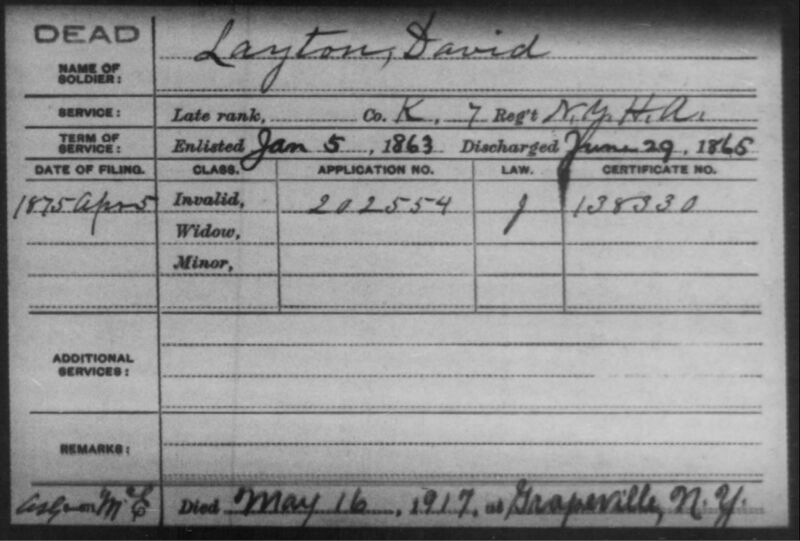 DEAD
NAME OF SOLDIER: Layton, David
SERVICE: Late rank, Co. K, 7 Reg't N.Y.H.A.
TERM OF SERVICE: Enlisted Jan 5, 1863 Discharged June 29, 1865
DATE OF FILING. CLASS. APPLICATION NO. LAW. CERTIFICATE NO.
1875 Apr 5 Invalid, 202554 J 138330
Widow,
Minor,
ADDITIONAL SERVICES:
REMARKS:
Died May 16, 1917, at Grapeville, N.Y.